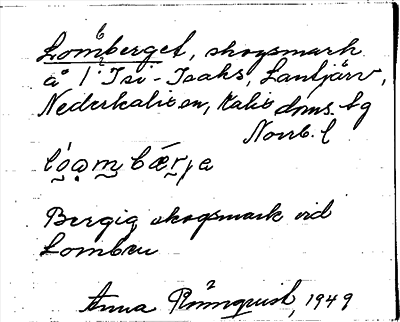 Lomberget, skogsmark
å 1 Isi-Isaks, Lantjärv,
Nederkalix sn, Kalix doms. tg
Norrb. l
Bergig skogsmark vid
Lombäcken
Anna Rönnqvist, 1949